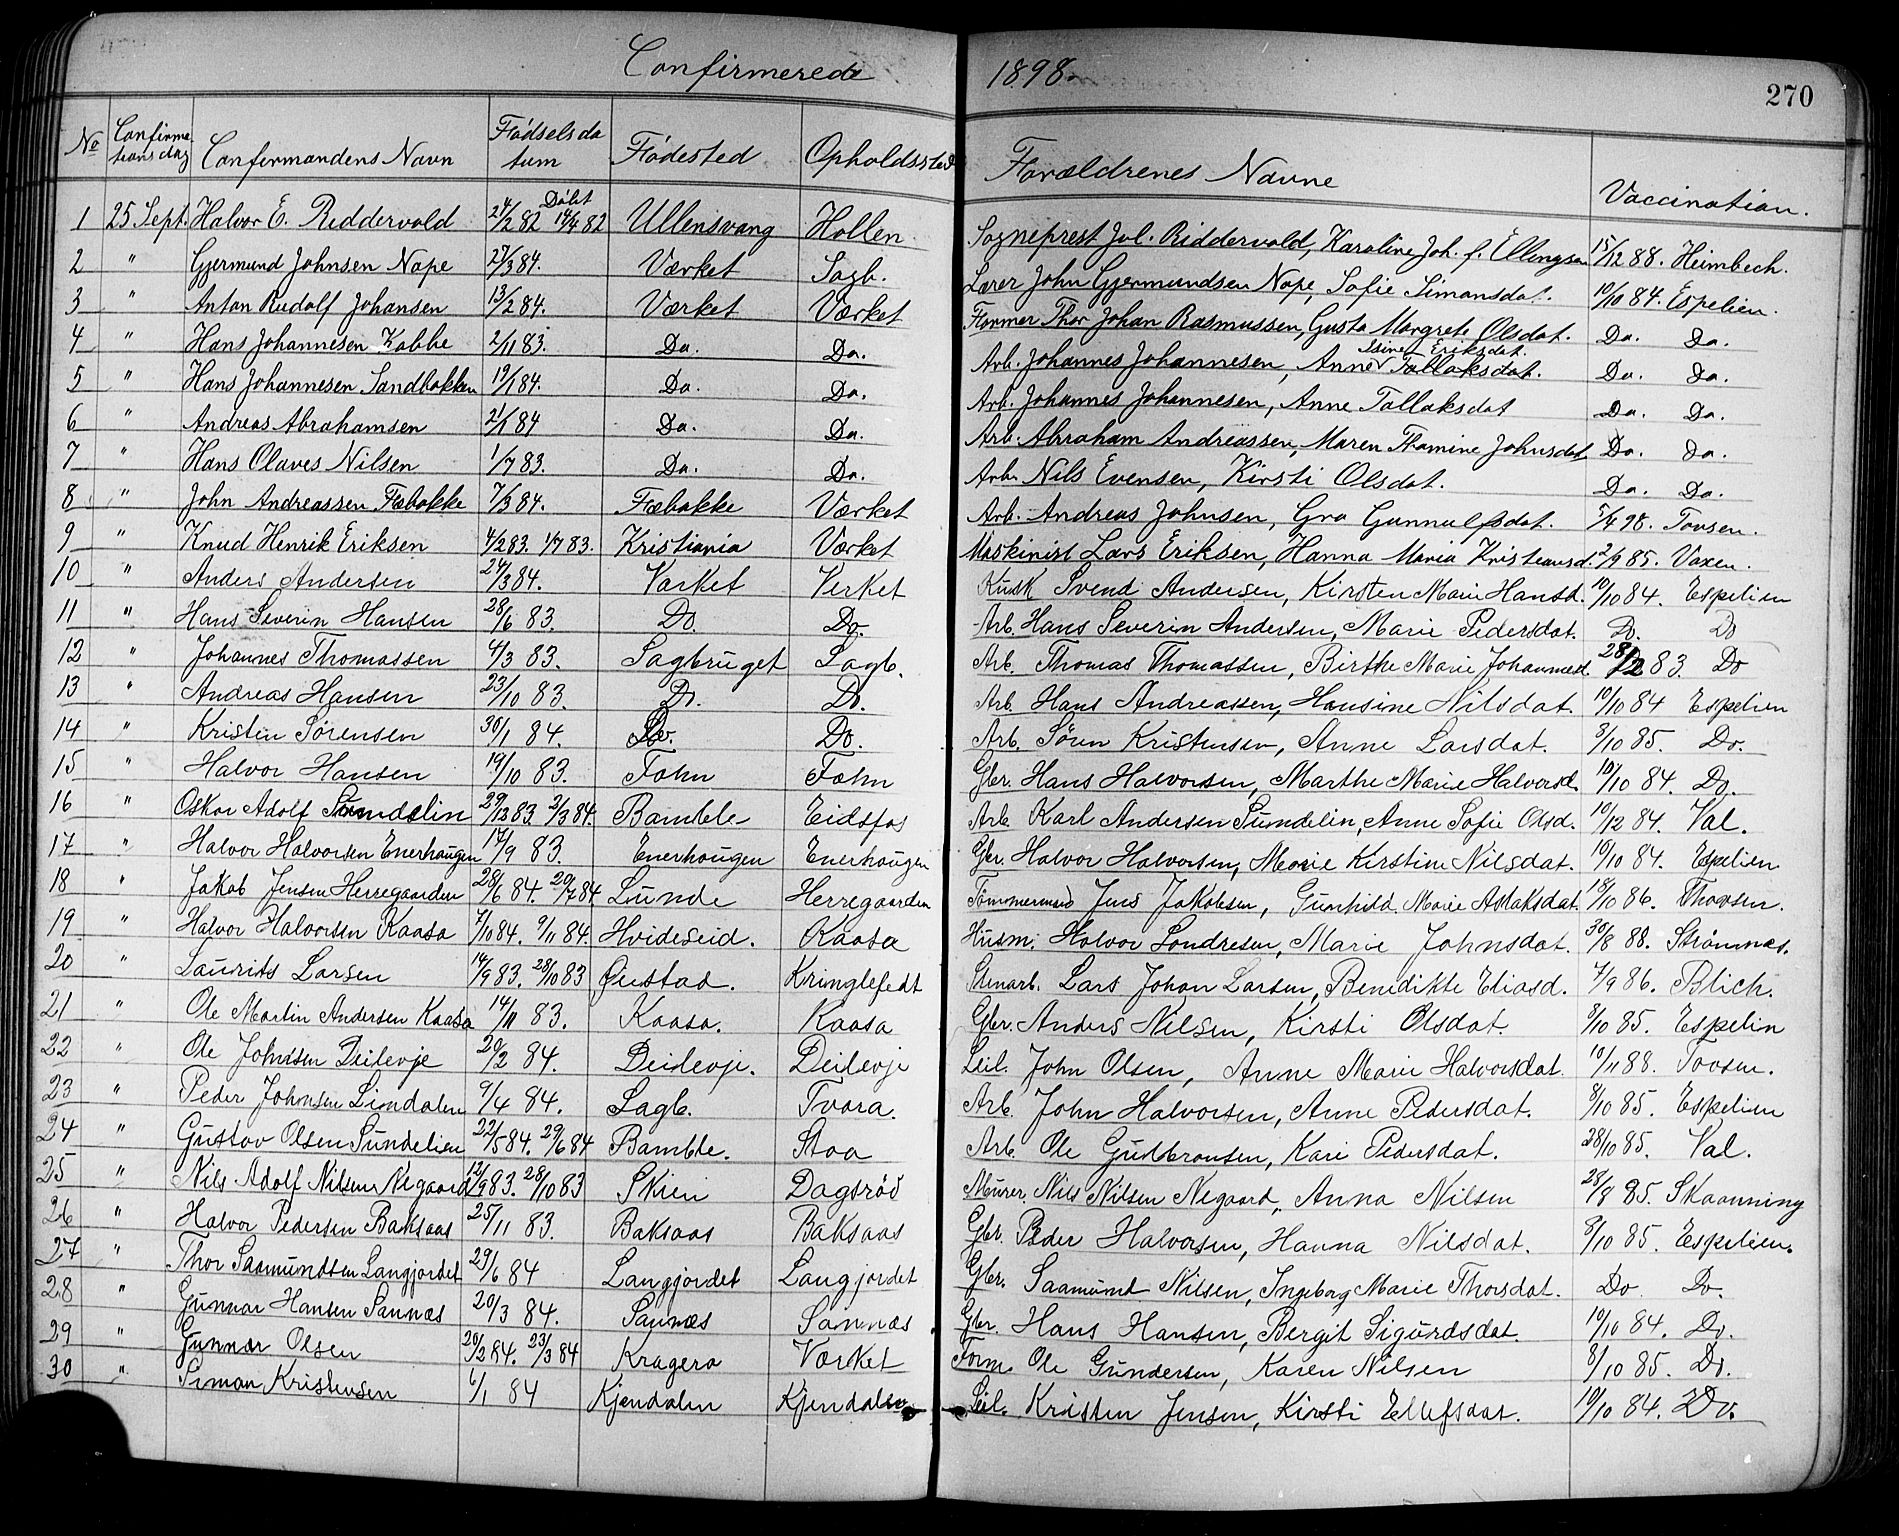 Confirmerede 1898.
270
No Confirmationsdag Confirmandens Navn Fødselsdatum Fødested Opholdssted Forældrenes Navne Vaccination.
1 25 Sept. Halvor E. Riddervold 24/2 82 Døbt 14/4 82 Ullensvang Hollen Sogneprest Jul. Riddervold, Karoline Joh. f. Ellingsen 15/12 88. Heimbech.
2 " Gjermund Johnsen Nape 27/3 84. Værket Sagb. Lærer John Gjermundsen Nape, Sofie Simonsdat. 10/10 84. Espelien.
3 " Anton Rudolf Johansen 13/2 84. Værket Værket Former Thor Johan Rasmussen, Gusta Margrete Olsdat. Do. Do.
4 " Hans Johannesen Kabbe 2/11 83. Do. Do. Arb. Johannes Johannesen, Anne Isine Eriksdat. Tallaksdat. Do. Do.
5 " Hans Johannesen Sandbakken 19/1 84. Do. Do. Arb. Johannes Johannesen, Anne Tallaksdat Do. Do.
6 " Andreas Abrahamsen 21/1 84 Do. Do. Arb. Abraham Andreassen, Maren Framine Johnsdat Do. Do.
7 " Hans Olaves Nilsen 1/7 83. Do. Do. Arb. Nils Evensen, Kirsti Olsdat. Do. Do.
8 " John Andreassen Fæbakke 7/3 84. Fæbakke Værket Arb. Andreas Johnsen, Gro Gunnulfsdat. 5/4 98. Tovsen.
9 " Knud Henrik Eriksen 4/2 83. 1/7 83. Kristiania Værket Maskinist Lars Eriksen, Hanna Maria Kristiansd. 2/9 85. Voxen.
10 " Anders Andersen 24/3 84. Værket Verket Kusk Svend Andersen, Kirsten Marie Hansd. 10/10 84. Espelien
11 " Hans Severin Hansen 28/6 83. Do. Do. Arb. Hans Severin Andersen, Marie Pedersdat. Do. Do
12 " Johannes Thomassen 4/3 83. Sagbruget Sagb. Arb. Thomas Thomassen, Birthe Marie Johannesd. 28/12 83. Do
13 " Andreas Hansen 23/10 83. Do. Do. Arb. Hans Andreassen, Hansine Nilsdat. 10/10 84 Espelien
14 " Kristen Sørensen 30/1 84. Do. Do. Arb. Søren Kristensen, Anne Larsdat. 8/10 85. Do.
15 " Halvor Hansen 19/10 83. Fæhn Fæhn Gbr. Hans Halvorsen, Marthe Marie Halvorsd. 10/10 84. Do.
16 " Oskar Adolf Sundelin 29/12 83 2/3 84. Bamble Eidsfos Arb. Karl Andersen Sundelin, Anne Sofie Olsd. 10/12 84. Val.
17 " Halvor Halvorsen Enerhaugen 17/9 83. Enerhaugen Enerhaugen Gbr. Halvor Halvorsen, Marie Kirstine Nilsdat. 10/10 84. Espelien
18 " Jakob Jensen Herregaarden 28/6 84. 20/7 84 Lunde Herregaarden Tømmermand Jens Jakobsen, Gunhild Marie Aslaksdat. 18/10 86. Thovsen.
19 " Halvor Halvorsen Kaasa 7/10 84. 9/11 84. Hvideseid. Kaasa Husm. Halvor Sondresen, Marie Johnsdat. 30/8 88. Strømnes.
20 " Laurits Larsen 14/9 83. 28/10 83 Øiestad. Kringlefedt Stenarb. Lars Johan Larsen, Benedikte Eliasd. 7/9 86. Blich.
21 " Ole Martin Andersen Kaasa 14/11 83. Kaasa. Kaasa Gbr. Anders Nilsen, Kirsti Olsdat. 8/10 85. Espelin
22 " Ole Johnsen Deilevje 20/2 84. Deilevje. Deilevje Leil. John Olsen, Anne Marie Halvorsdat. 10/11 88. Tovsen.
23 " Peder Johnsen Lindalen 9/4 84. Sagb. Tvara. Arb. John Halvorsen, Anne Pedersdat. 8/10 85. Espelien
24 " Gustav Olsen Sundelien 22/5 84. 29/6 84 Bamble. Stoa Arb. Ole Gudbransen, Kari Pedersdat. 28/10 85. Val.
25 " Nils Adolf Nilsen Negaard 12/9 83. 28/10 83 Skien Dagsrød Murer. Nils Nilsen Negaard, Anna Nilsen 28/8 85. Skaanning
26 " Halvor Pedersen Baksaas 25/11 83. Baksaas Baksaas Gbr. Peder Halvorsen, Hanna Nilsdat. 8/10 85. Espelien.
27 " Thor Saamundsen Langjordet 29/6 84 Langjordet Langjordet Gbr. Saamund Nilsen, Ingeborg Marie Thorsdat. Do Do.
28 " Gunnar Hansen Sannæs 20/3 84. Sannæs Sannæs Gbr. Hans Hansen, Bergit Sigurdsdat 10/10 84. Do.
29 " Gunnar Olsen 20/2 84. 23/3 84 Kragerø Værket Form. Ole Gundersen, Karen Nilsen 8/10 85. Do.
30 " Simon Kristensen 6/1 84 Kjendalen Kjendalen Leil. Kristen Jensen, Kirsti Ellefsdat. 10/10 84. Do.